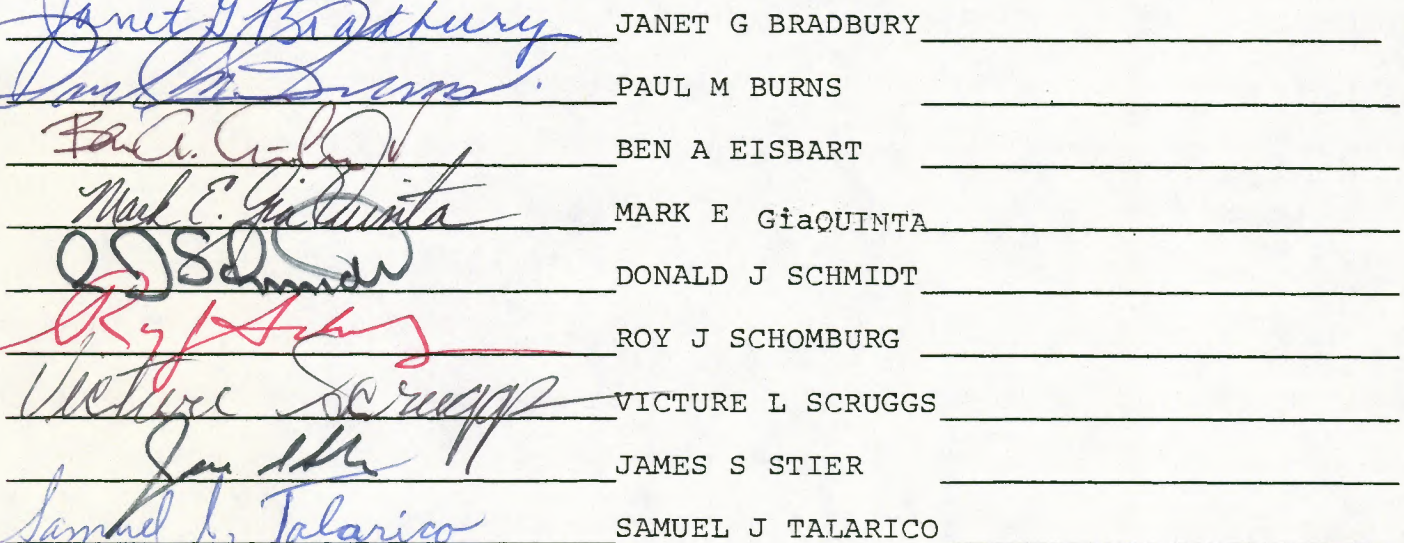 Janet G Bradbury JANET G BRADBURY
Paul M. Burns. PAUL M BURNS
Ben A. BEN A EISBART
Mark E. GiaQuinta MARK E GiaQUINTA
D J Schmidt DONALD J SCHMIDT
Roy J ROY J SCHOMBURG
Victure Scruggs VICTURE L SCRUGGS
JAMES S STIER
Samuel J. Talarico SAMUEL J TALARICO